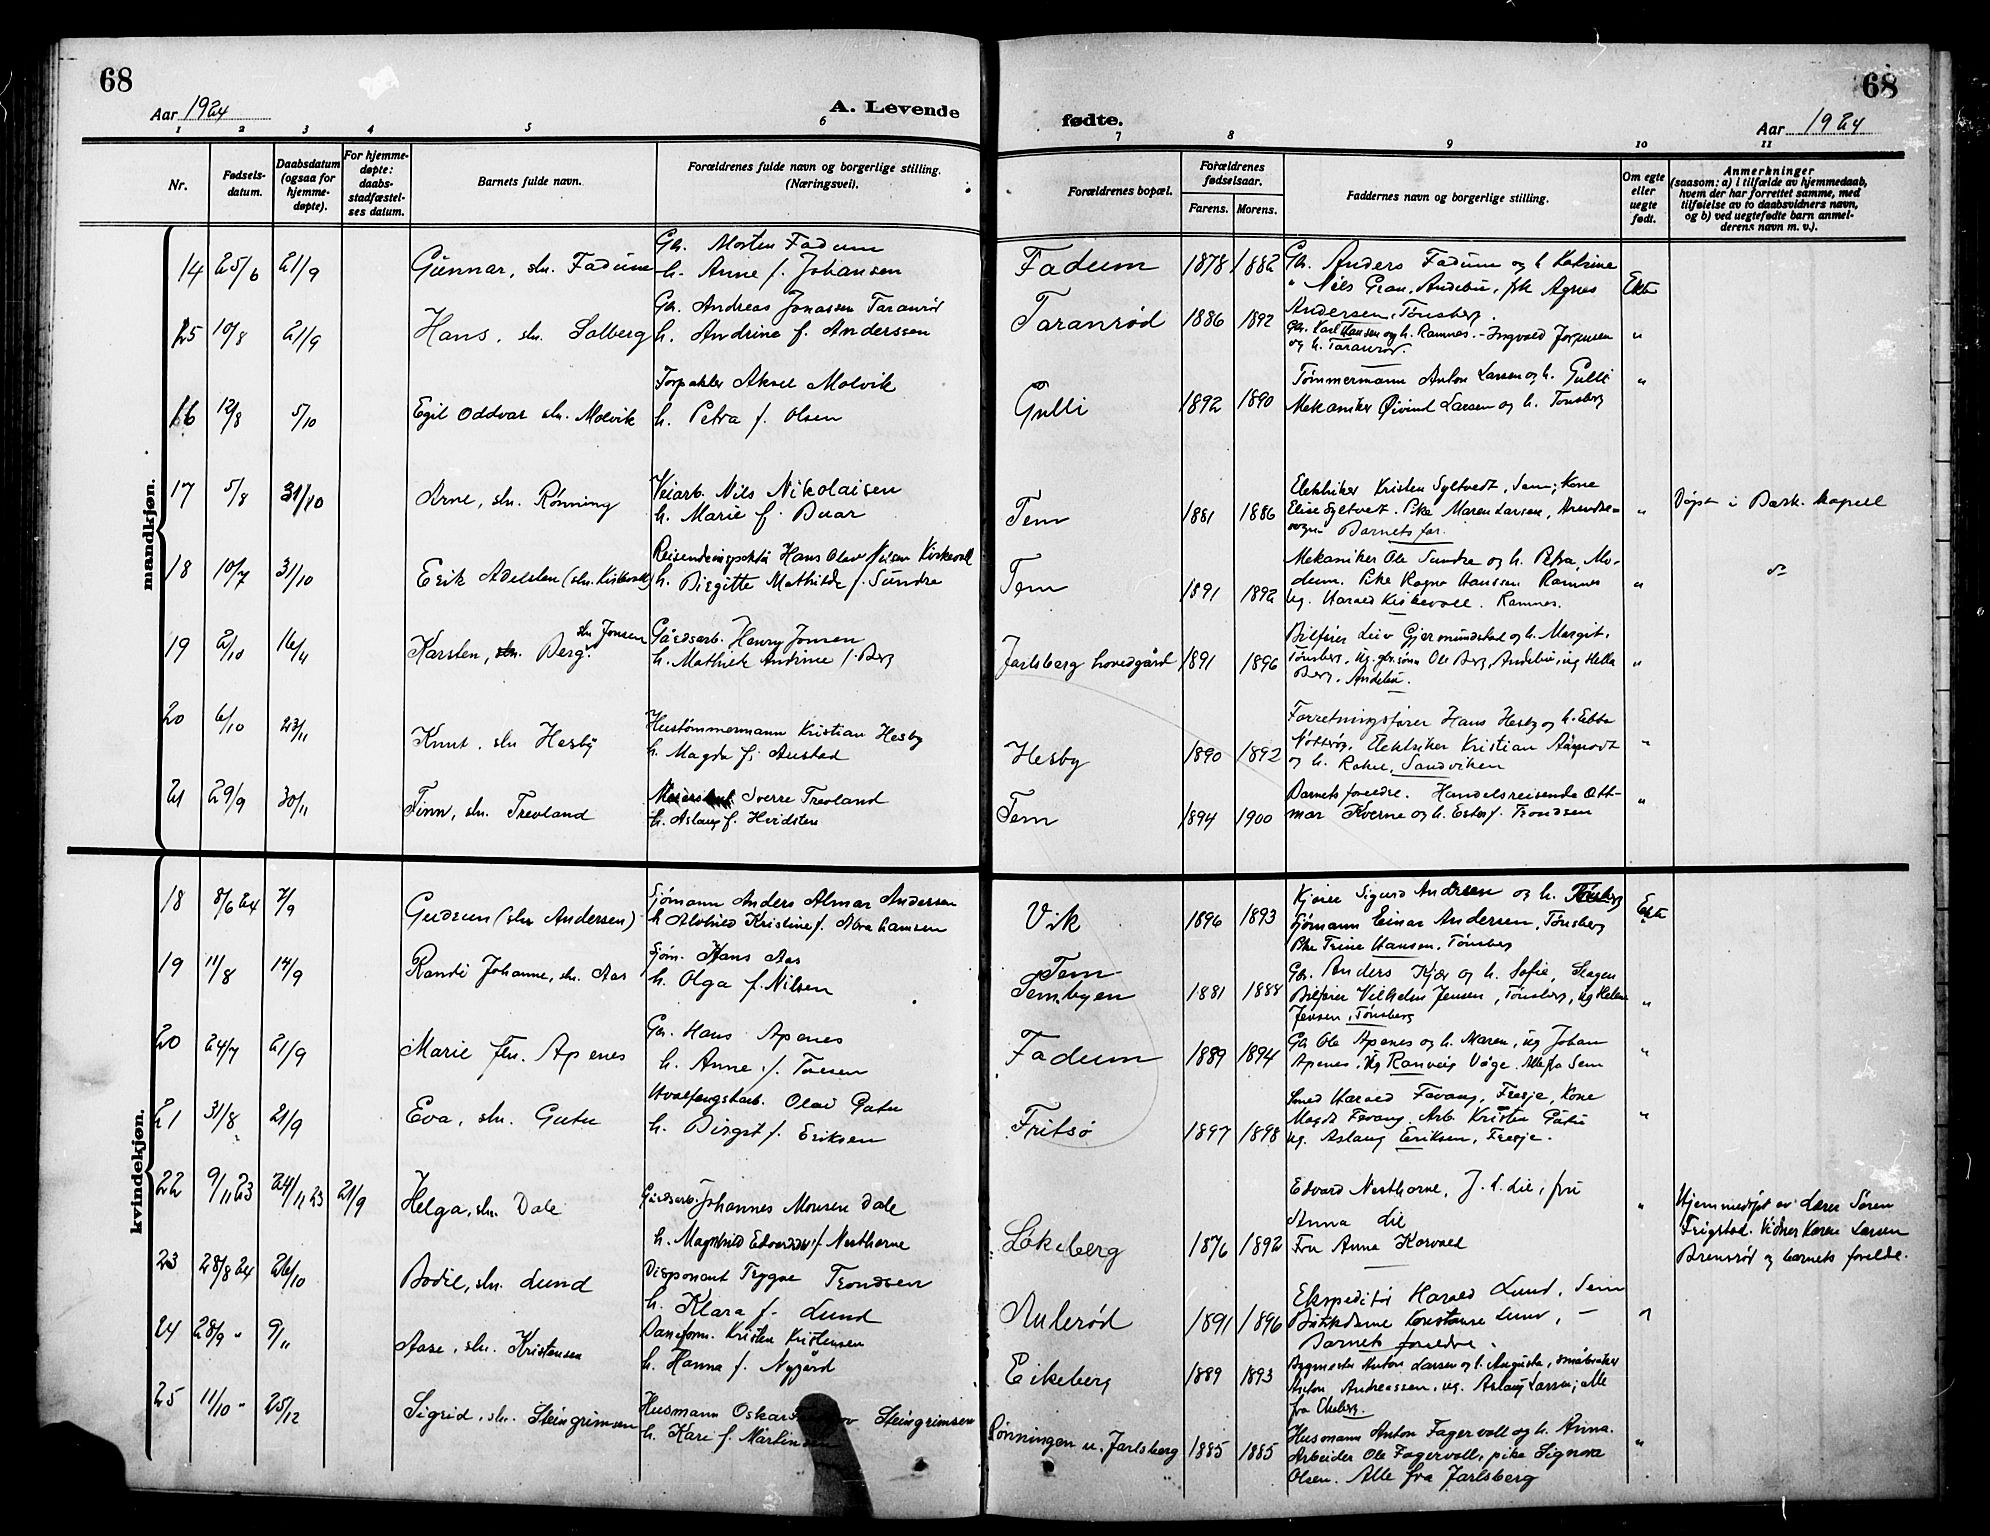 68
Aar 1924
A. Levende
fødte.
Aar 1924
68
1 2 3 4 5 6 7 8 9 10 11
Nr.
Fødsels-
datum.
Daabsdatum
(ogsaa for
hjemme-
døpte).
For hjemme-
døpte:
daabs-
stadfæstel-
ses datum.
Barnets fulde navn.
Forældrenes fulde navn og borgerlige stilling.
(Næringsvei).
Forældrenes bopæl.
Forældrenes
fødselsaar.
Farens. Morens.
Faddernes navn og borgerlige stilling.
Om egte
eller
uegte
født.
Anmerkninger
(saasom: a) i tilfælde av hjemmedaab,
hvem der har forrettet samme, med
tilføielse av to daabsvidners navn,
og b) ved uegtefødte barn anmel-
derens navn m. v.).
mandkjøn.
14 25/6 21/9 Gunnar, sln. Fadum
Gbr. Morten Fadum
h. Anne f. Johansen
Fadum 1878 1882
Gbr. Anders Fadum og h. Katrine
" Nils Gran, Andebu, frk Agnes
Andersen, Tønsberg.
Ekte
15 10/8 21/9 Hans, sln. Solberg
Gbr. Andreas Jonassen Taranrød
h. Andrine f. Anderssen
Taranrød 1886 1892
Gbr. Karl Hansen og h. Ramnes. - Ingvald
og h. Taranrød.
"
16 12/8 5/10 Egil Oddvar sln. Molvik
Forpakter Aksel Molvik
h. Petra f. Olsen
Gulli 1892 1890
Tømmermann Anton Larsen og h. Gulli
Mekaniker Øivind Larsen og h. Tønsberg
"
17 5/8 31/10 Arne, sln. Rønning
Veiarb. Nils Nikolaisen
h. Marie f. Buar
Sem 1881 1886
Elektriker Kristen Syltvedt, Sem; Kone
Elise Syltvedt. Pike Maren Larsen,
Barnets far.
"
Døpt i Bark. kapell
18 10/7 31/10 Erik Adelsten (sln. Kirkevoll)
Hans Olav Nilsen Kirkevoll
h. Birgitte Mathilde f. Sundre
Sem 1891 1892
Mekaniker Ole Sundre og h. Petra, Mo-
dum. Pike Ragna Hanssen Ramnes
Ug. Harald Kirkevoll. Ramnes.
"
19 2/10 16/11 Karsten, sln. Berg. sln Jonsen
Gårdsarb. Henry Jonsen
h. Mathilde Andrine f. Berg
Jarlsberg hovedgård 1891 1896
Bilfører Leiv Gjermundstad og h. Margit,
Tønsberg, Ug. gbr.sønn Ole Berg, Andebu, ug Hella
Berg, Andebu.
"
20 6/10 23/11 Knut, sln Hesby
Hustømmermann Kristian Hesby
h. Magda f. Austad
Hesby 1890 1892
Forretningsfører Hans Hesby og h. Ebba
Nøtterøy, Elektriker Kristian
og h. Rakel, Sandviken
"
21 29/9 30/11 Finn, sln. Trevland
Sverre Trevland
h. Aslaug f. Hvidsten
Sem 1894 1900
Barnets foreldre. Handelsreisende Ott-
mar Kverne og h. Ester f. Trondsen
"
kvindekjøn.
18 8/6 24 7/9 Gudrun (sln Andersen)
Sjømann Anders Almar Andersen
h Alvhild Kristine f. Abrahamsen
Vik 1896 1893
Kjører Sigurd Andersen og h. Tønsberg
Sjømann Einar Andersen, Tønsberg
Pike Trine Hansen, Tønsberg
Ekte
19 11/8 14/9 Randi Johanne, sln. Aas
Sjøm. Hans Aas
h. Olga f. Nilsen
Sem
Sembyen 1881 1888
Gbr. Anders Kjær og h. Sofie, Slagen
Bilfører Vilhelm Jensen, Tønsberg, Ug Helen
Jensen, Tønsberg
"
20 24/7 21/9 Marie sln. Apenes
Gbr. Hans Apenes
h. Anne f.
Fadum 1889 1894
Gbr Ole Apenes og h. Maren, Ug Johan
Apenes, Ug Ranveig Våge. Alle fra Sem
"
21 31/8 21/9 Eva, sln. Gutu
Hvalfangstarb. Olav Gutu
h. Birgit f. Eriksen
Fritsø 1897 1898
Smed Harald Fevang, Freste, Kone
Magda Fevang. Arb. Kristen Gutu
Ug. Aslaug Eriksen,
"
22 9/11 23 24/11 23 21/9 Helga, sln. Dale
Gårdsarb. Johannes Monsen Dale
h. Magnhild f. Nesthorne
Løkeberg 1876 1892
Edvard Nesthorne, J. L. Lie, fru
Anna Lie
Fru Anna Korvald
"
Hjemmedøpt av Lærer Søren
Frigstad. Vidner Karen Larsen
Brensrød og barnets forelde.
23 28/8 24 26/10 Bodil, sln. Lund
Disponent Trygve Trondsen
h. Klara f. Lund
Aulerød 1891 1896
Ekspeditør Harald Lund, Sem
Konstanse Lund, -
Barnets foreldre.
"
24 28/9 " 9/11 Aase, sln. Kristensen
Kristen Kristensen
h. Hanna f. Nygård
Eikeberg 1889 1893
Bygmester Anton Larsen og h. Augusta, småbruker
Anton Andreassen, ug. Aslaug Larsen; alle
fra Ekeberg.
25 11/10 " 25/12 Sigrid, sln. Steingrimsen
Husmann Oskar Steingrimsen
h. Kari f. Martinsen
Rønningen u. Jarlsberg 1885 1885
Husmann Anton Fagervoll og h. Anna.
Arbeider Ole Fagervoll, pike Signora
Olsen. Alle fra Jarlsberg
"